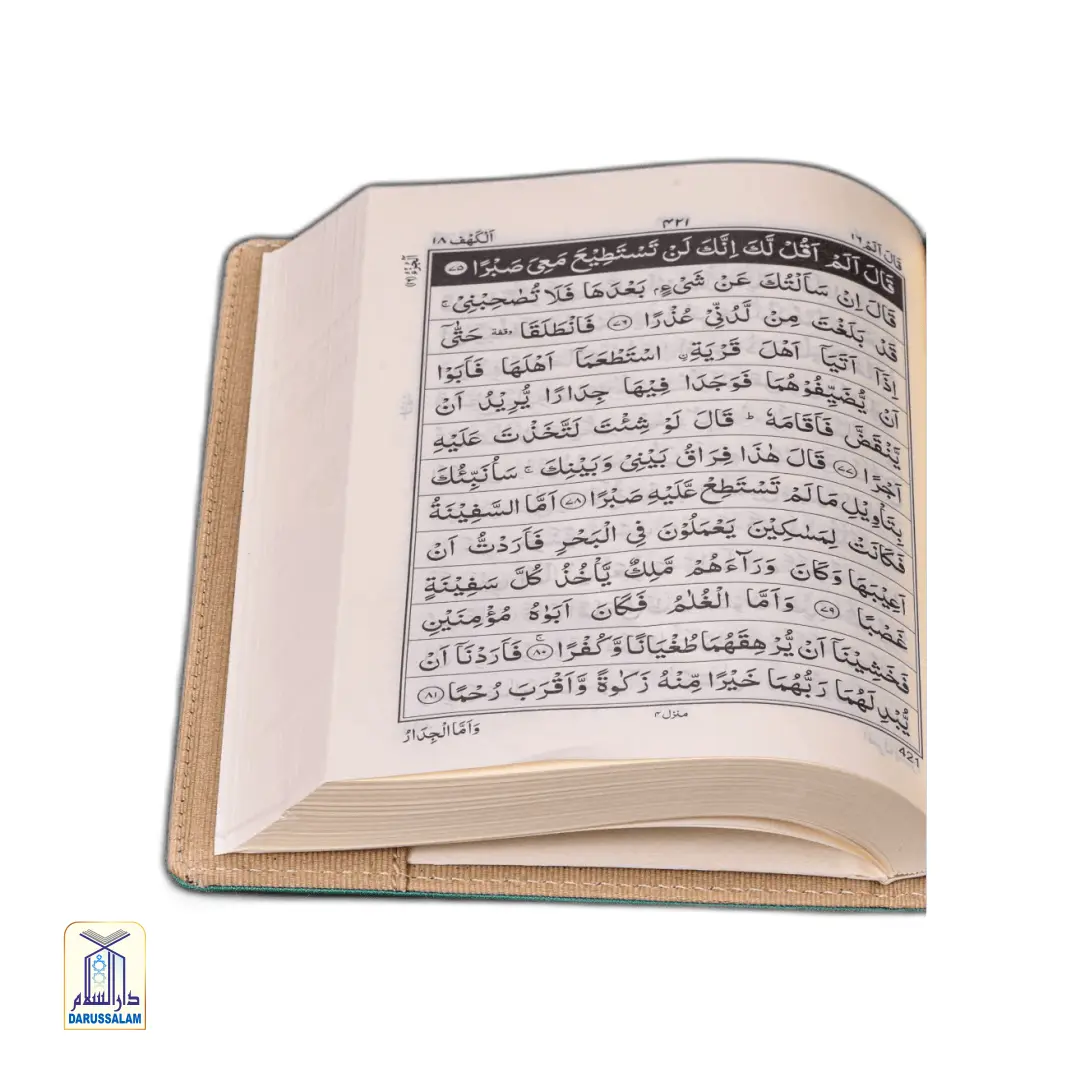 ۴۲۱
قَالَ اَلَمْ ۱۶
اَلْكَهْف ۱۸
قَالَ اَلَمْ اَقُلْ لَّكَ اِنَّكَ لَنْ تَسْتَطِيْعَ مَعِيَ صَبْرًا ﴿۷۵﴾
قَالَ اِنْ سَاَلْتُكَ عَنْ شَيْءٍۭ بَعْدَهَا فَلَا تُصٰحِبْنِيْ ۚ
قَدْ بَلَغْتَ مِنْ لَّدُنِّيْ عُذْرًا ﴿۷۶﴾ فَانْطَلَقَا وقفة حَتّٰٓى
اِذَآ اَتَيَآ اَهْلَ قَرْيَةِ ۨ اسْتَطْعَمَآ اَهْلَهَا فَاَبَوْا
اَنْ يُّضَيِّفُوْهُمَا فَوَجَدَا فِيْهَا جِدَارًا يُّرِيْدُ اَنْ
يَّنْقَضَّ فَاَقَامَهٗ ؕ قَالَ لَوْ شِئْتَ لَتَّخَذْتَ عَلَيْهِ
اَجْرًا ﴿۷۷﴾ قَالَ هٰذَا فِرَاقُ بَيْنِيْ وَبَيْنِكَ ۚ سَاُنَبِّئُكَ
بِتَاْوِيْلِ مَا لَمْ تَسْتَطِعْ عَّلَيْهِ صَبْرًا ﴿۷۸﴾ اَمَّا السَّفِيْنَةُ
فَكَانَتْ لِمَسٰكِيْنَ يَعْمَلُوْنَ فِي الْبَحْرِ فَاَرَدْتُّ اَنْ
اَعِيْبَهَا وَكَانَ وَرَآءَهُمْ مَّلِكٌ يَّاْخُذُ كُلَّ سَفِيْنَةٍ
غَصْبًا ﴿۷۹﴾ وَاَمَّا الْغُلٰمُ فَكَانَ اَبَوٰهُ مُؤْمِنَيْنِ
فَخَشِيْنَآ اَنْ يُّرْهِقَهُمَا طُغْيَانًا وَّكُفْرًا ۚ ﴿۸۰﴾ فَاَرَدْنَآ اَنْ
يُّبْدِلَهُمَا رَبُّهُمَا خَيْرًا مِّنْهُ زَكٰوةً وَّاَقْرَبَ رُحْمًا ﴿۸۱﴾
منزل ۴
وَاَمَّا الْجِدَارُ
421
دارالسلام
DARUSSALAM